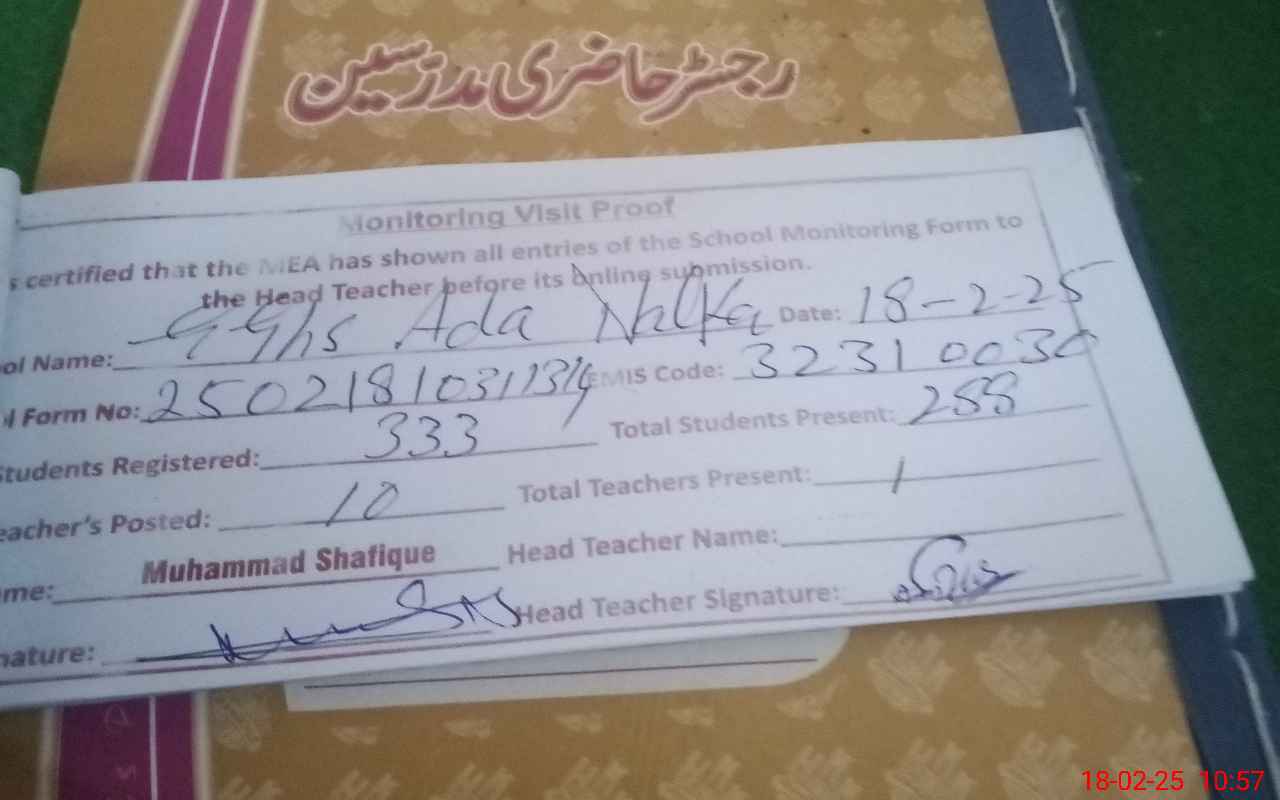 رجسٹر حاضری مدرسین
Monitoring Visit Proof
s certified that the MEA has shown all entries of the School Monitoring Form to
the Head Teacher before its online submission.
ol Name: GGhs Ada Nalka Date: 18-2-25
l Form No: EMIS Code: 32310030
Students Registered: 333 Total Students Present: 288
eacher's Posted: 10 Total Teachers Present: 1
me: Muhammad Shafique Head Teacher Name:
nature: Head Teacher Signature:
18-02-25 10:57